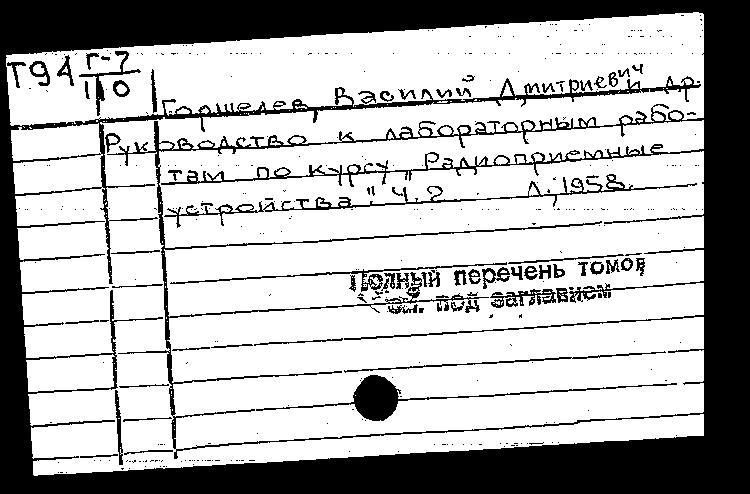 Т94 Г-7
110
Горшелев, Василий Дмитриевич и др.
Руководство к лабораторным рабо-
там по курсу „Радиоприемные
устройства" Ч. 2. Л., 1958.
Полный перечень томов
см. под заглавием